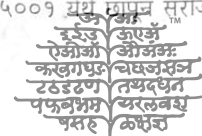 ५००१ ग्रंथ छापून सराज
अ आ TM
इ ई उ ऊ ए ॲ
ऐ ओ औ ऑ अं अः
क ख ग घ ङ च छ ज झ ञ
ट ठ ड ढ ण त थ द ध न
प फ ब भ म य र ल व श
ष स ह ळ क्ष ज्ञ